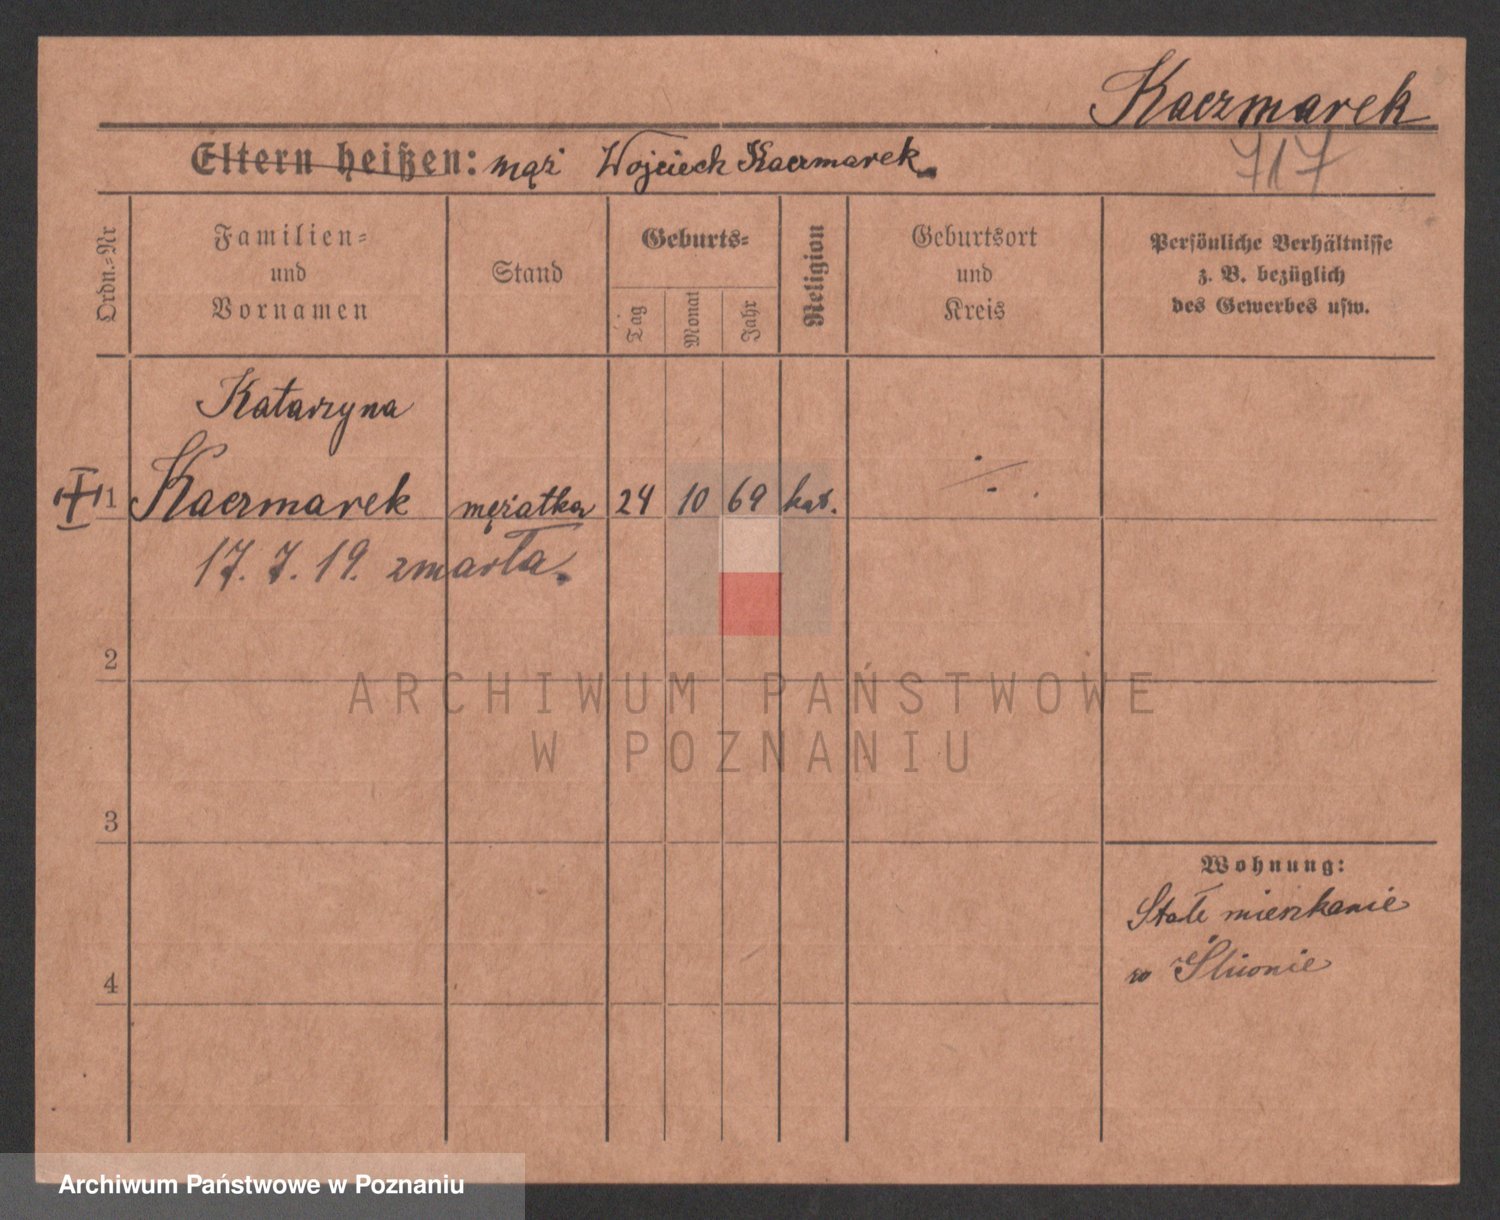 Kaczmarek
717
Eltern heißen: mąż Wojciech Kaczmarek.
Ordn.=Nr
Familien=
und
Vornamen
Stand
Geburts=
Tag
Monat
Jahr
Religion
Geburtsort
und
Kreis
Persönliche Verhältnisse
z. B. bezüglich
des Gewerbes usw.
Katarzyna
1 Kaczmarek mężatka 24 10 69 kat.
17. 7. 19. zmarła.
2
ARCHIWUM PAŃSTWOWE
W POZNANIU
3
Wohnung:
Stałe mieszkanie
w
4
Archiwum Państwowe w Poznaniu